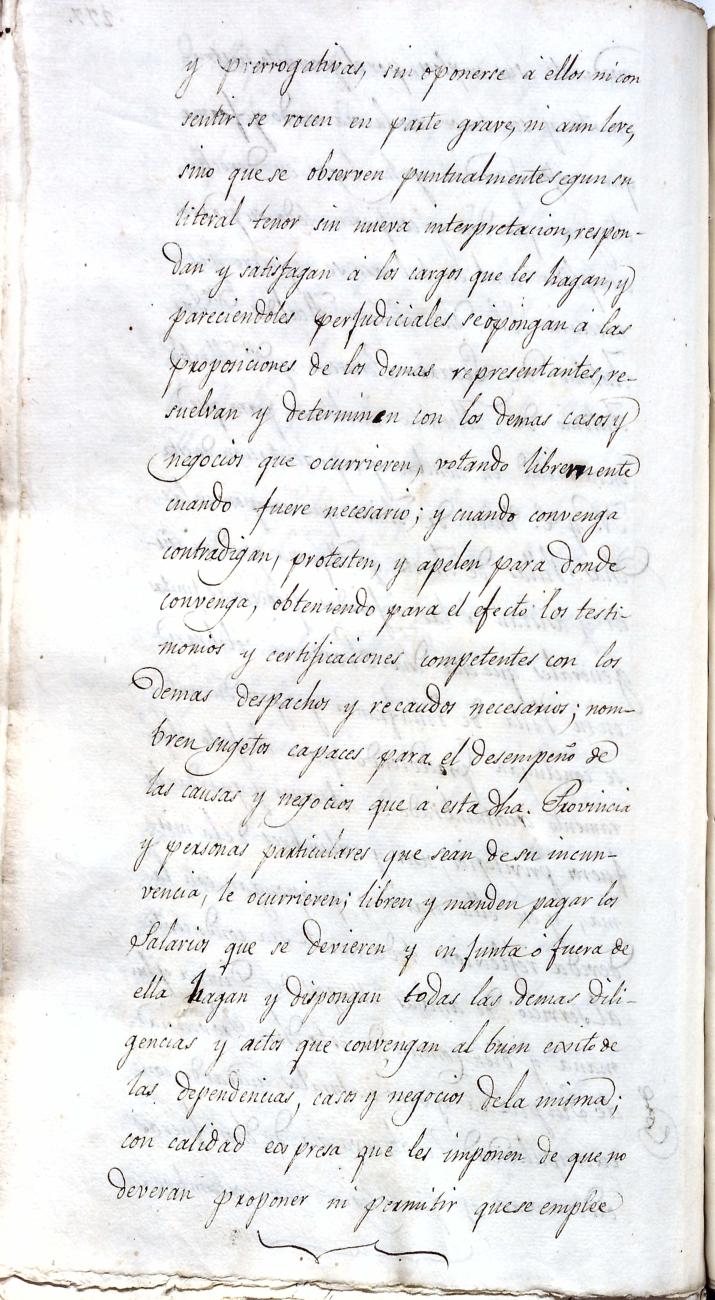 y prerrogativas, sin oponerse á ellos ni con
sentir se rocen en parte grave, ni aun leve,
sino que se observen puntualmente segun su
literal tenor sin nueva interpretacion, respon-
dan y satisfagan á los cargos que les hagan, y
pareciendoles perjudiciales se opongan á las
proposiciones de los demas representantes, re-
suelvan y determinen con los demas casos y
negocios que ocurrieren, votando libremente
cuando fuere necesario; y cuando convenga
contradigan, protesten, y apelen para donde
convenga, obteniendo para el efecto los testi-
monios y certificaciones competentes con los
demas despachos y recaudos necesarios; nom-
bren sugetos capaces para el desempeño de
las causas y negocios que á esta dha. Provincia
y personas particulares que sean de su incun-
vencia, le ocurrieren; libren y manden pagar los
Salarios que se devieren y en Junta ó fuera de
ella hagan y dispongan todas las demas dili-
gencias y actos que convengan al buen exito de
las dependencias, casos y negocios de la misma;
con calidad expresa que les imponen de que no
deveran proponer ni permitir que se emplee